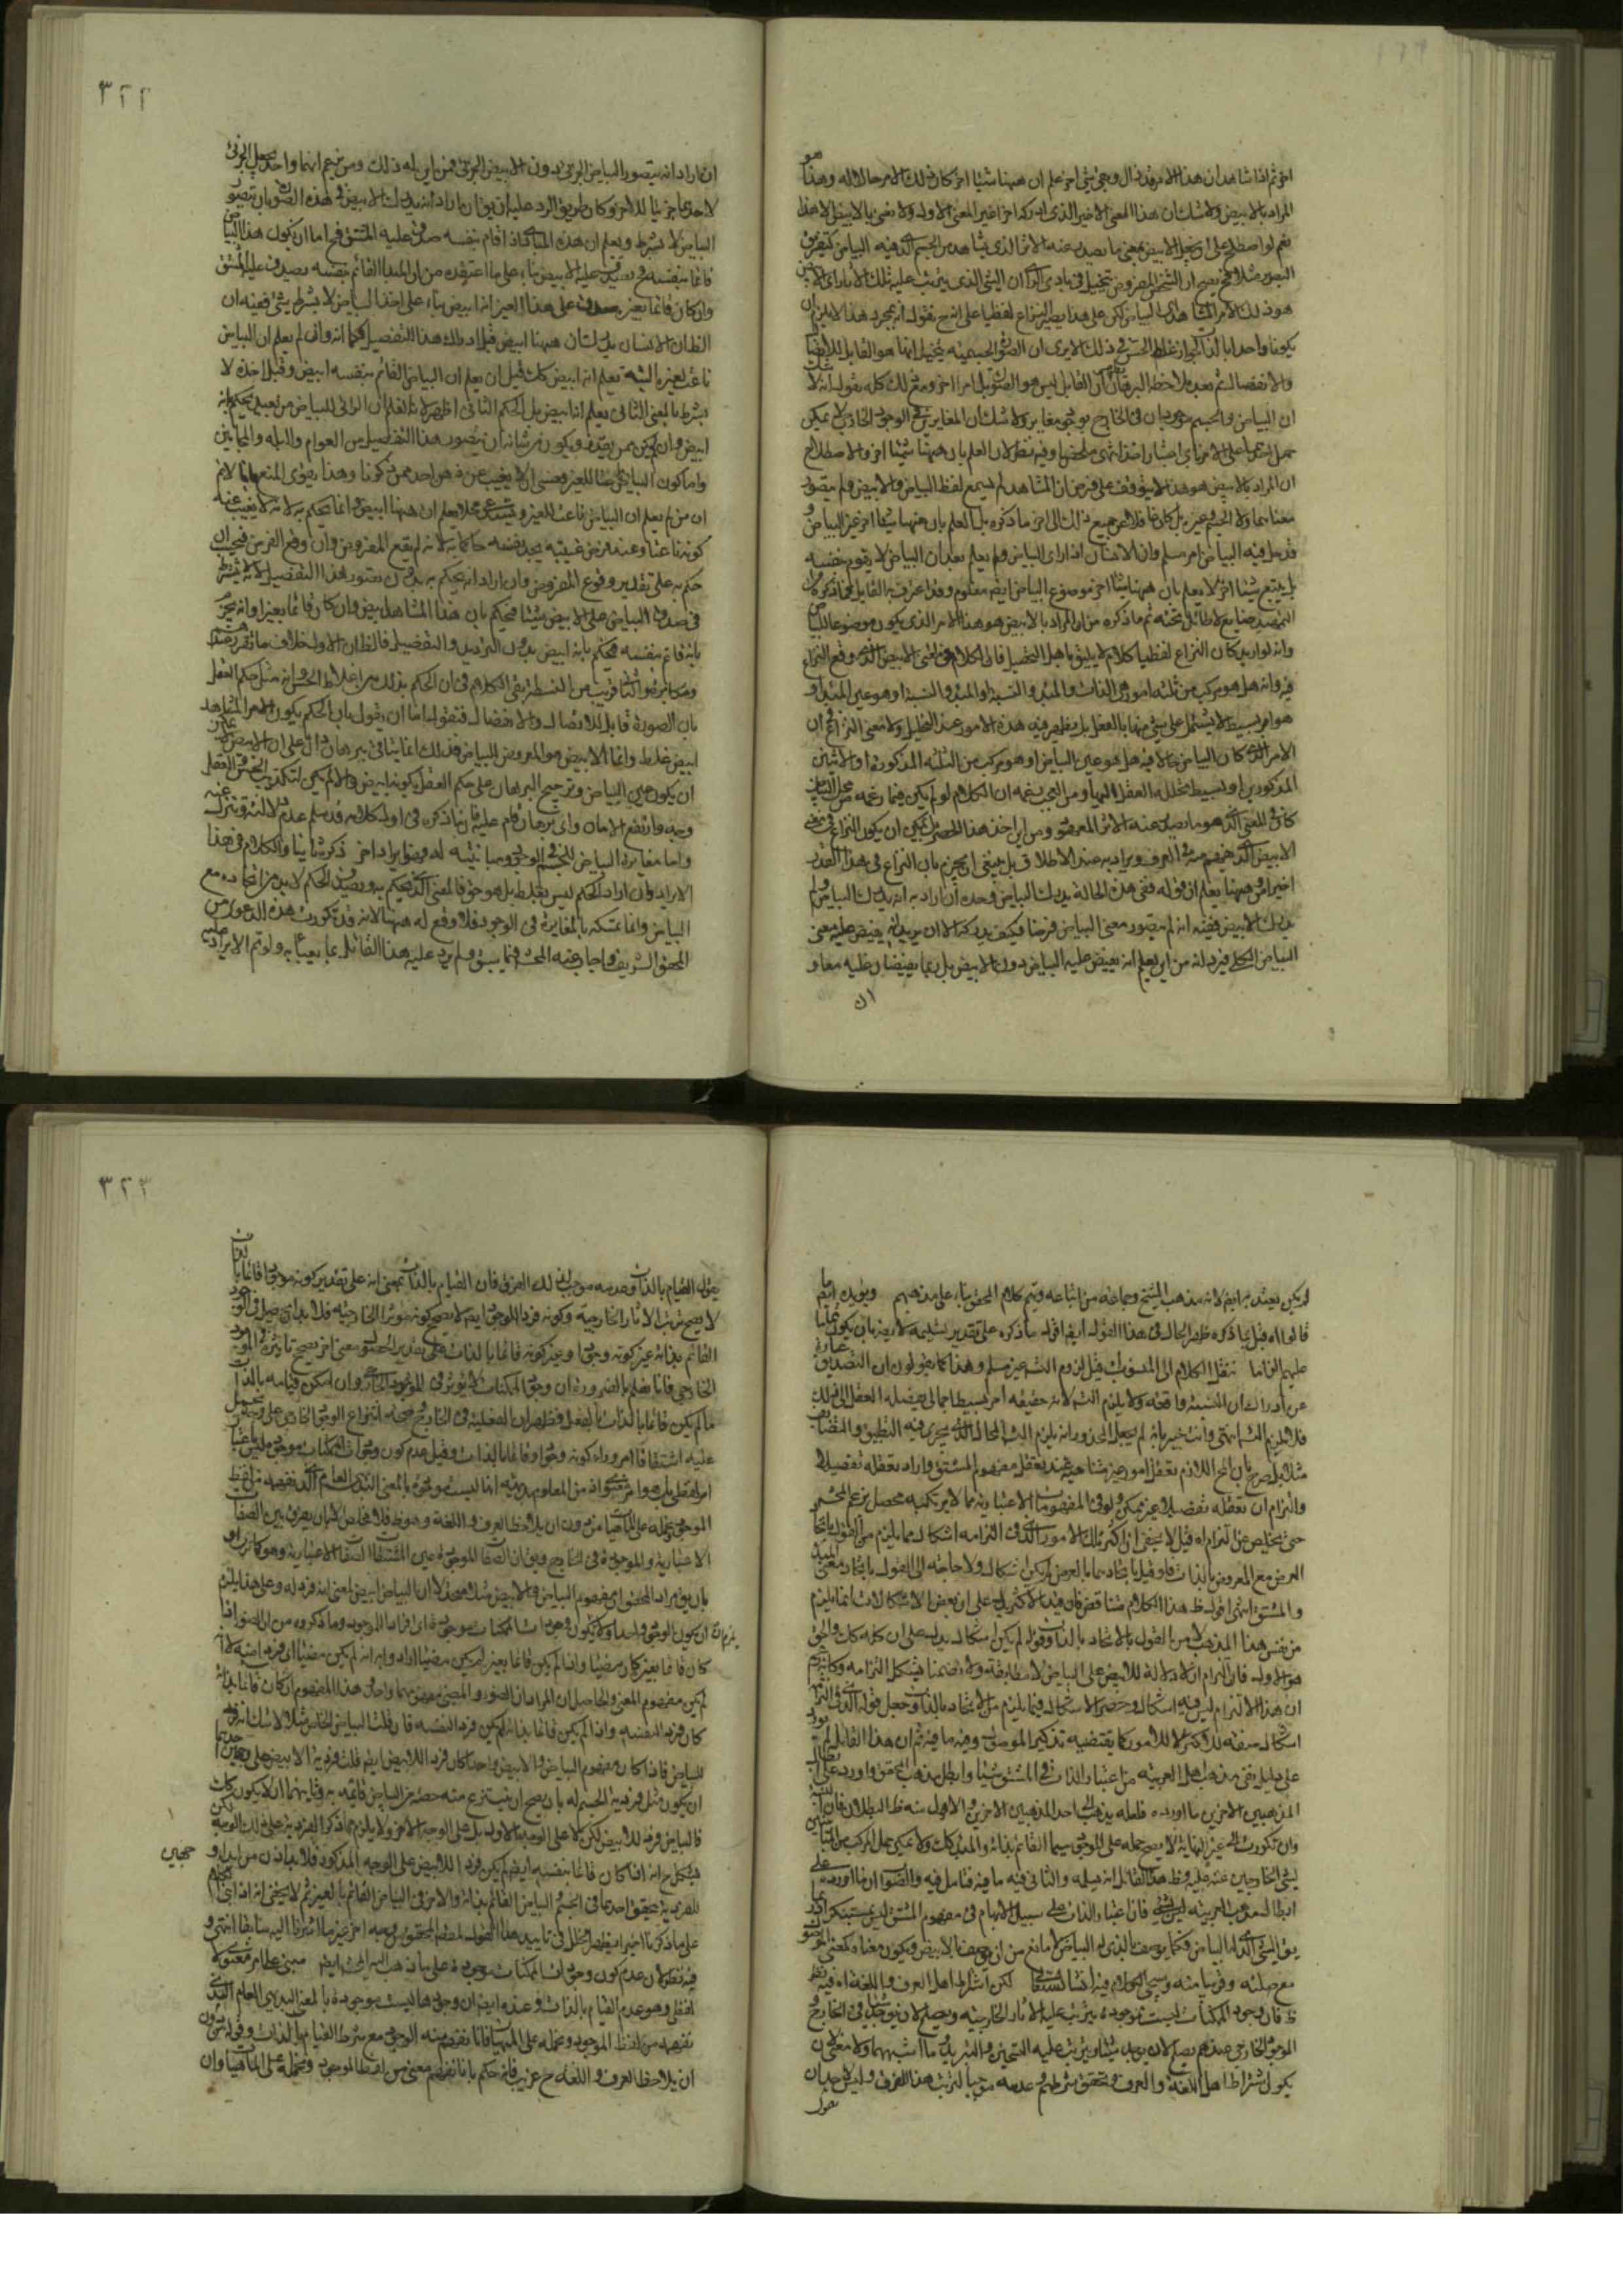 هو
اخر ثم اذا شاهد ان هذا الامر قد زال وجئ بشئ اخر علم ان ههنا شيئا اخر كان ذلك الامر حالا له وهذا
المراد بالابيض ولا شك ان هذا المعنى الاخير الذى ادركه اخرا غير المعنى الاول ولا نعنى بالابيض الا هذا
نعم لو اصطلح على ان يجعل الابيض بمعنى ما يصدر عنه الاثر الذى يشاهد من الجسم الذى فيه البياض كتفريق
البصر مثلا فح يصح ان الشخص المفروض يتخيل فى بادى الراى ان الشئ الذى يترتب عليه تلك الاثار اى الابيض
هو ذلك الامر المشاهد اى البياض لكن على هذا يصير النزاع لفظيا على انه ح نقول انه بمجرد هذا لا يلزم ان
يكونا واحدا بالذات لجواز غلط الحس فى ذلك الا يرى ان الصورة الجسمية يتخيل انها هو القابل للاتصال
والانفصال ثم بعد ملاحظة البرهان ان القابل ليس هو الصورة بل امرا اخر ومع ذلك كله نقول انه لا شك
ان البياض والجسم موجودان فى الخارج بوجود مغاير ولا شك ان المغايرين فى الوجود الخارجى لا يمكن
حمل احدهما على الاخر باى اعتبار اخذ انتهى ملخصا وفيه نظر لان العلم بان ههنا شيئا اخر والاصطلاح
ان المراد بالابيض هو هذا لا يتوقف على فرض ان المشاهد لم يسمع لفظ البياض والابيض ولم يتصور
معناهما ولا الجسم وغيره بل كان غافلا عن جميع ذلك الى اخر ما ذكره بل العلم بان ههنا شيئا اخر غير البياض و
قد حل فيه البياض امر مسلم وان الانسان اذا راى البياض ولم يعلم بعد ان البياض لا يقوم بنفسه
بل يتبع شيئا اخر لا يعلم بان ههنا شيئا اخر موضوع البياض ايضا معلوم وقد اعترف به القايل فما ذكره كان
التمهيد ضايع لا طائل تحته ثم ما ذكره من ان المراد بالابيض هو هذا الامر الذى يكون موضوعا للبياض
وانه لو اريد كان النزاع لفظيا كلام لا يليق باهل التحصيل فان الكلام فى معنى الابيض الذى وقع النزاع
فيه وانه هل هو مركب من ثلثة امور هى الذات والمبدء والنسبة او المبدء والنسبة او هو عين المبدء او
هو امر بسيط لا يشتمل على شئ منها بالفعل بل يظهر فيه هذه الامور عند التحليل ولا معنى النزاع فى ان
الامر الذى كان البياض حالا فيه هل هو عين البياض او هو مركب من الثلثة المذكورة او الاثنين
المذكورين او بسيط يحلله العقل اليها ومن العجب زعمه ان الكلام لو لم يكن فيما زعمه من محل البياض
كان فى المعنى الذى هو ما يصدر عنه الاثر المعروف ومن اين اخذ هذا الحصر بل يمكن ان يكون النزاع فى معنى
الابيض الذى يفهم منه فى العرف ويراد به عند الاطلاق بل ينبغى ان يجزم بان النزاع فى هذا القدر
اخيرا ومن ههنا يعلم ان قوله ففى هذه الحالة يدرك البياض وحده ان اراد به انه يدرك البياض ولم
يدرك الابيض ففيه انه لم يتصور معنى البياض فرضا فكيف يدركه الا ان يريد انه يفيض عليه معنى
البياض الكلى فيرد انه من اين يعلم انه يفيض عليه البياض دون الابيض بل ربما يفيضان عليه معا و
ان
٣٢٢
ان اراد انه يتصور البياض الجزئى بدون الابيض الجزئى فمن اين له ذلك ومن زعم انهما واحد يجعل الجزئى
لاحدهما جزئيا للاخر وكان طريق الرد عليه ان يق ان اراد انه يدرك الابيض فى هذه الصورة بان تصور
البياض لا بشرط ويعلم ان هذه المبادى اذا قام بنفسه صدق عليه المشتق فح اما ان يكون هذا البياض
قائما بنفسه فح يصدق عليه الابيض بناء على ما اعتقده من ان المبدا القائم بنفسه يصدق عليه المشتق
وان كان قائما بغيره يصدق على هذا الغير انه ابيض بناء على اخذ البياض لا بشرط شئ ففيه ان
الظ ان الانسان يدرك ان ههنا ابيض قبل ادراك هذا التفصيل كما انه وان لم يعلم ان البياض
ناعت لغيره البتة يعلم انه ابيض كك قبل ان يعلم ان البياض القائم بنفسه ابيض وقبل اخذه لا
بشرط بالمعنى الثانى يعلم انه ابيض بل الحكم الثانى اظهر لانا نعلم ان الرائى للبياض من بعيد يحكم بانه
ابيض وان لم يكن ممن يصدق ويكون من شانه ان يتصور هذا التفصيل من العوام والبله والمجانين
واما كون البياض ناعتا للغير فعسى ان لا يغيب عن ذهن احد ممن ذكرنا وهذا يقوى المنع
ان من لم يعلم ان البياض ناعت للغير ويستدعى محلا يعلم ان ههنا ابيض وانما يحكم به لانه لا يغيب عنه
كونه ناعتا وعند فرض غيبته يجد نفسه حاكما به لانه لم يقع المفروض وان وقع الفرض فيجب ان
حكم به على تقدير وقوع المفروض وان اراد انه يحكم به بدون تصور هذا التفصيل لانه لا يشترط
فى صدق البياض على الابيض شيئا فيحكم بان هذا المشاهد ابيض وان كان قائما بغيره وانه يجزم
بانه قائم بنفسه فيحكم بانه ابيض بدون الترديد والتفصيل فالظ ان الاول خلاف ما تقرر عندهم
ومكابرة والثانى قريب من السفسطة بقى الكلام فى ان الحكم بذلك من اغلاط الحس وانه مثل حكم العقل
بان الصورة قابل للاتصال والانفصال فنقول اما ان يقول بان الحكم بكون الامر المشاهد
ابيض غلط وانما الابيض هو المعروض للبياض فذلك انما يتاتى ببرهان دال على ان الابيض لا يمكن
ان يكون عين البياض وترجيح البرهان على حكم العقل بكونه ابيض والا لم يكن لتكذيب الحس والعقل
وجه وارتفع الامان واى برهان قام عليه فان ما ذكره فى اول كلامه قد سلم عدم دلالته وتنزل عنه
واما مغايرة البياض للجسم فى الوجود ومباينته له فهو ايراد اخر ذكره ثانيا والكلام فى هذا
الايراد وان اراد الحكم ليس بغلط بل هو حق فالمعنى الذى يحكم به ويصدق الحكم لا بد من اتحاده مع
البياض وانما تمسكه بالمغايرة فى الوجود فلا وقع له ههنا لانه قد تكررت هذه الدعوى من
المحقق الشريف واجاب عنه المحشى فيما سبق ولم يرد عليه هذا القائل بما يعبأ به ولو تم الايراد عليه
لم يكن يعتد به ايضا لانه مذهب الشيخ وجماعة من اتباعه ويتم كلام المحقق بناء على مذهبهم ويؤيده ايضا ما
قالوا اه قيل بما ذكره ظهر الحال فى هذا القول ايضا اقول ما ذكره على تقدير تسليمه لا ريب بان يكون نقضا
عليهم الزاما ننقل الكلام الى المنسوب قيل لزوم التسه غير مسلم وهذا كما يقولون ان التصديق عبارة
عن ادراك ان النسبة واقعة ولا يلزم التسه لانه حقيقة امر بسيط اجمالى يفصله العقل الى ذلك
فلا يلزم التسه انتهى وانت خبير بانه لم يجعل المحذور انه يلزم التسه المحال الذى يجرى فيه التطبيق والتضايف
مثلا بل صرح بان الح اللازم تعقل امور غير متناهية عند تعقل مفهوم المشتق واراد تعقله تفصيلا
والتزام ان تعقله تفصيلا غير ممكن ولو فى المفهومات الاعتبارية مما لا يرتكبه محصل بزعم المحشى
حتى يتخلص من التزامه قيل لا يخفى ان اكثر تلك الامور الذى فى التزامه اشكال مما يلزم من القول باتحاد
العرض مع المعروض بالذات فلو قيل باتحادهما بالعرض لم يكن اشكال ولا حاجة الى القول باتحاد معنى المبدء
والمشتق انتهى اقول ظ هذا الكلام متناقض فان قيد الاكثر يدل على ان بعض الاشكالات انما يلزم
من نفس هذا المذهب لا من القول بالاتحاد بالذات وقوله لم يكن اشكال يدل على ان كله كك والحق
هو الاول فان التزام ان لا دلالة للابيض على البياض لا مطابقة ولا تضمنا فيشكل التزامه وكانه زعم
ان هذا الالتزام ليس فيه اشكال وحصر الاشكال فيما يلزم من الاتحاد بالذات وجعل قوله الذى فى التزامها
اشكال صفة للاكثر لا للامور كما يقتضيه تذكير الموصول وفيه ما فيه ثم ان هذا القائل لم يورد
على دليل نفى مذهب اهل العربية من اعتبار الذات فى المشتق شيئا وابطل مذهب المحقق واورد على ابطال
المذهبين الاخرين ما اورده فلعله يذهب الى احد المذهبين الاخرين والاول منه ظ البطلان فان النسبة
وان تكررت الى غير النهاية لا يصح حمله على الموجود سيما القائم بذاته والمبدء كك ولا يمكن حمل المركب من المتباينين
لشئ الخارجين عنه عليه وظ هذا القائل انه يميله والثانى فيه ما فيه فتامل فيه والصواب ان ما اورده على
ابطال مذهب العربية ليس بشئ فان اعتبار الذات على سبيل الابهام فى مفهوم المشتق ليس بمستنكر اذ كما
يق الشئ الذى له البياض فكما يوصف بالذى له البياض لا مانع من ان يوصف بالابيض ويكون معناه كمعنى الموصول
مع صلته وقريبا منه وسيجئ الكلام فيه ان شاء الله تعالى لكن اشتراط اهل العرف واللغة اه فيه نظر
ظ فان وجود الممكنات ليست موجودة يترتب عليه الاثار الخارجية ويصلح لان يق حاصل فى الخارج و
الموجود الخارجى عندهم يصلح لان يوجد شيئا ويترتب عليه التسخين والتبريد وما اشبههما ولا معنى لان
يكون اشتراط اهل اللغة والعرف وتحقق شرطهم وعدمه موجبا لترتب هذا الفرق وليس لاحد ان
يقول
٣٢٣
يقول القيام بالذات وعدمه موجب لذلك الفرق فان القيام بالذات بمعنى انه على تقدير كونه موجودا قائما بالذات
لا يصح ترتب الاثار الخارجية وكونه فردا للموجود ايضا لا يصح كونه مؤثرا الخارجية فلا بد اى حصل فى الوجود
القائم بذاته غير كونه وجودا وغير كونه قائما بالذات على تقدير الحصول معنى اخر يصحح تاثيره فى الموجود
الخارجى فانا نعلم بالضرورة ان وجود الممكنات لا يؤثر فى الموجود الخارجى وان امكن قيامه بالذات
ما لم يكن قائما بالذات بالفعل فظهر ان الفعلية فى الخارج وصحة انتزاع الوجود الخارجى على وجه يحمل
عليه اشتقاقا امر وراء كونه وجودا وقائما بالذات وقيل عدم كون وجود الممكنات موجودة ليس باعتبار
امر لفظى بل هو امر معنوى اذ من المعلوم بديهة انها ليست موجودة بالمعنى البديهى العام الذى نفهمه من لفظ
الموجود ونحمله على الماهيات من دون ان يلاحظ العرف واللغة وهو ظ فلا مخلص الا بان يفرق بين الصفات
الاعتبارية والموجودة فى الخارج ويق ان الصفات الموجودة عين المشتقات الصفات الاعتبارية وهو كما ترى او
بان يق مراد المحقق ان مفهوم البياض والابيض مثلا متحد لا ان البياض ابيض بمعنى انه فرد له وعلى هذا يلزم
يلزم ان ان يكون الوجود واحدا ولا يكون وجودات الممكنات موجودة اى افراد الموجود وما ذكروه من ان الضوء اذا
كان قائما بغيره كان مضيئا وان لم يكن قائما بغيره لم يكن مضيئا ارادوا به انه لم يكن مضيئا اى فردا منه لا انه
لم يكن مفهوم المعنى والحاصل ان المراد ان الضوء والمضئ مفهومهما واحد وهذا المفهوم ان كان قائما بذاته
كان فردا لنفسه واذا لم يكن قائما بذاته لم يكن فردا لنفسه فان قلت البياض الخاص مثلا لا شك انه فرد
للبياض فاذا كان مفهوم البياض والابيض واحدا كان فردا للابيض ايضا قلت فردية الابيض على وجهين احدهما
ان يكون مثل فردية الجسم له بان يصح ان ينتزع منه حصة من البياض قائمة به وثانيهما ان لا يكون كك
فالبياض فرد للابيض لكن لا على الوجه الاول بل على الوجه الاخر ولا يلزم مما ذكر الفردية على ذلك الوجه لكن
يشكل ح انه اذا كان قائما بنفسه ايضا لم يكن فردا للابيض على الوجه المذكور فلا بد اذن من ابداء وجهين
للفردية يتحقق احدهما فى الجسم والبياض القائم بذاته والاخر فى البياض القائم بالغير ثم لا يخفى انه اذا بنى الكلام
على ما ذكرنا اخيرا يظهر خلل فى تاييد هذا القول لمطلوب المحقق بوجه اخر غير ما اشرنا اليه سابقا انتهى و
فيه نظر لان عدم كون وجود الممكنات موجودة على ما ذهب اليه المحشى ايضا مبنى على امر معنوى لا
لفظى وهو عدم القيام بالذات وعنده ايضا ان وجودها ليست موجودة بالمعنى البديهى العام الذى
نفهمه من لفظ الموجود ونحمله على المهيات فانا نفهم منه الوجود مع شرط القيام بالذات وقوله من دون
ان يلاحظ العرف واللغة ح غريب فانه حكم بانا نفهم معنى من لفظ الموجود ونحمله على الماهيات وان